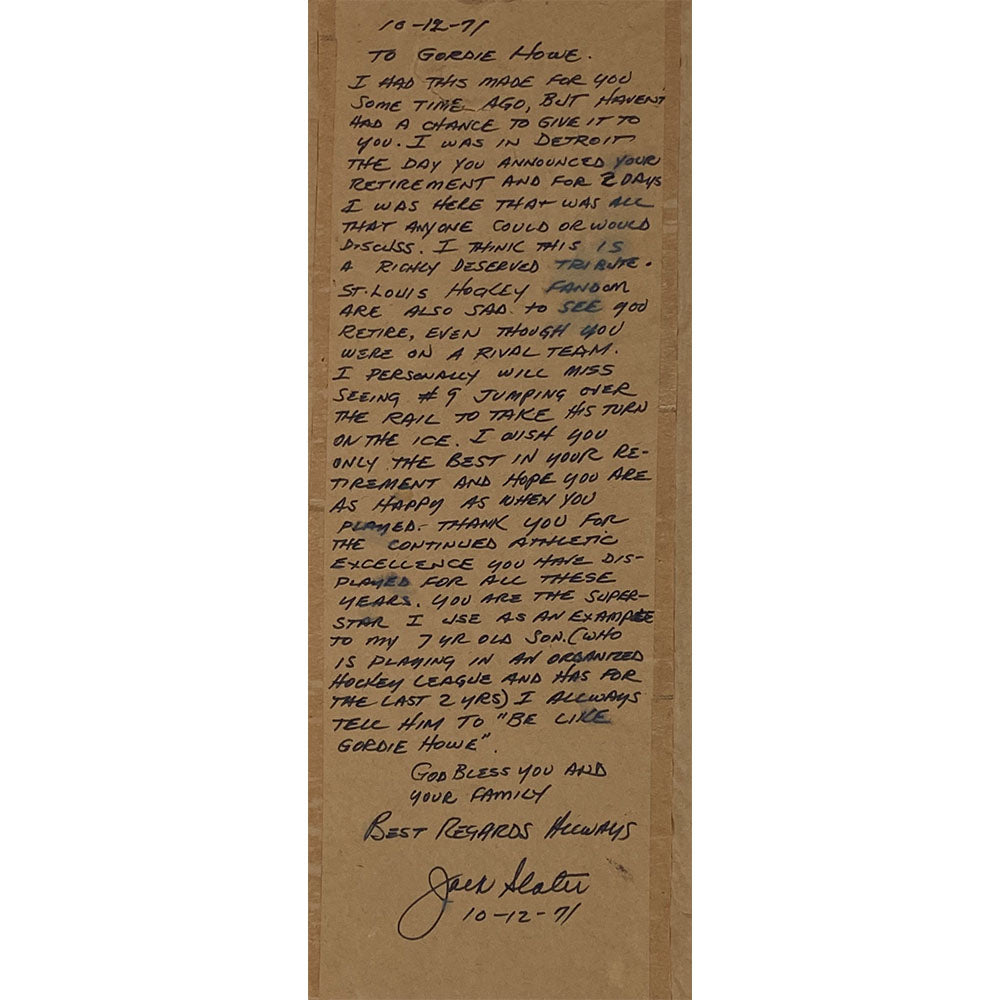 10-12-71
TO GORDIE HOWE.
I HAD THIS MADE FOR YOU
SOME TIME AGO, BUT HAVENT
HAD A CHANCE TO GIVE IT TO
YOU. I WAS IN DETROIT
THE DAY YOU ANNOUNCED YOUR
RETIREMENT AND FOR 2 DAYS
I WAS HERE THAT WAS ALL
THAT ANYONE COULD OR WOULD
DISCUSS. I THINK THIS IS
A RICHLY DESERVED TRIBUTE.
ST. LOUIS HOCKEY FANDOM
ARE ALSO SAD TO SEE YOU
RETIRE, EVEN THOUGH YOU
WERE ON A RIVAL TEAM.
I PERSONALLY WILL MISS
SEEING #9 JUMPING OVER
THE RAIL TO TAKE HIS TURN
ON THE ICE. I WISH YOU
ONLY THE BEST IN YOUR RE-
TIREMENT AND HOPE YOU ARE
AS HAPPY AS WHEN YOU
PLAYED. THANK YOU FOR
THE CONTINUED ATHLETIC
EXCELLENCE YOU HAVE DIS-
PLAYED FOR ALL THESE
YEARS. YOU ARE THE SUPER-
STAR I USE AS AN EXAMPLE
TO MY 7 YR OLD SON. (WHO
IS PLAYING IN AN ORGANIZED
HOCKEY LEAGUE AND HAS FOR
THE LAST 2 YRS) I ALLWAYS
TELL HIM TO "BE LIKE
GORDIE HOWE".
GOD BLESS YOU AND
YOUR FAMILY
BEST REGARDS ALLWAYS
Jack Slater
10-12-71